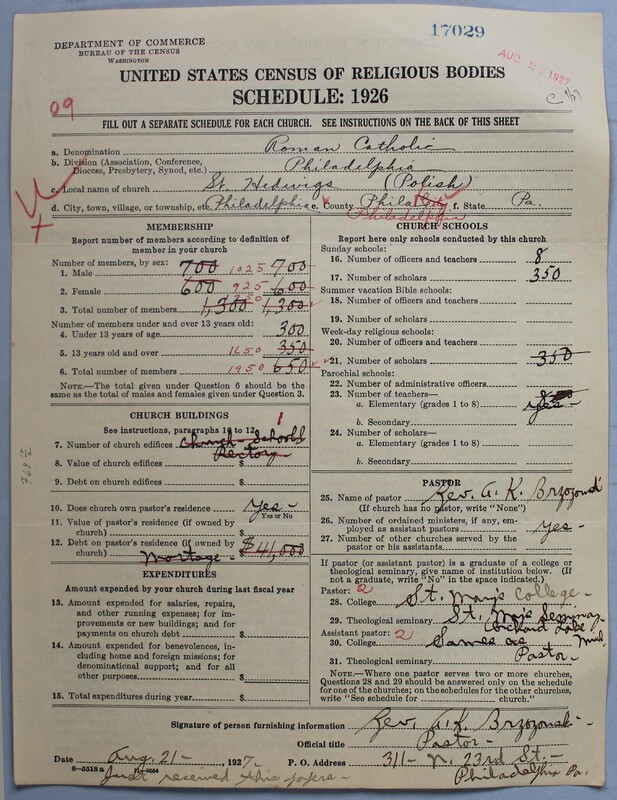 17029
DEPARTMENT OF COMMERCE
BUREAU OF THE CENSUS
WASHINGTON
AUG 1927
UNITED STATES CENSUS OF RELIGIOUS BODIES
SCHEDULE: 1926
09
FILL OUT A SEPARATE SCHEDULE FOR EACH CHURCH. SEE INSTRUCTIONS ON THE BACK OF THIS SHEET
a. Denomination Roman Catholic
b. Division (Association, Conference, Diocese, Presbytery, Synod, etc.) Philadelphia
c. Local name of church St. Hedwigs (Polish)
d. City, town, village, or township, etc. Philadelphia e. County Phila f. State Pa.
Philadelphia
MEMBERSHIP
Report number of members according to definition of
member in your church
Number of members, by sex:
1. Male 700 1025 700
2. Female 600 925 600
3. Total number of members 1,300 1,300
Number of members under and over 13 years old:
4. Under 13 years of age 300
5. 13 years old and over 1650 350
6. Total number of members 1950 650
NOTE.—The total given under Question 6 should be the
same as the total of males and females given under Question 3.
CHURCH BUILDINGS
See instructions, paragraphs 10 to 12
1
7. Number of church edifices Church - School
Rectory
8. Value of church edifices $
9. Debt on church edifices $
10. Does church own pastor's residence? Yes -
Yes or No
11. Value of pastor's residence (if owned by
church) $
12. Debt on pastor's residence (if owned by
church) Mortage - $41,000
EXPENDITURES
Amount expended by your church during last fiscal year
13. Amount expended for salaries, repairs,
and other running expenses; for im-
provements or new buildings; and for
payments on church debt $
14. Amount expended for benevolences, in-
cluding home and foreign missions; for
denominational support; and for all
other purposes $
15. Total expenditures during year $
CHURCH SCHOOLS
Report here only schools conducted by this church
Sunday schools:
16. Number of officers and teachers 8
17. Number of scholars 350
Summer vacation Bible schools:
18. Number of officers and teachers
19. Number of scholars
Week-day religious schools:
20. Number of officers and teachers
21. Number of scholars 350
Parochial schools:
22. Number of administrative officers
23. Number of teachers—
a. Elementary (grades 1 to 8) yes
b. Secondary
24. Number of scholars—
a. Elementary (grades 1 to 8)
b. Secondary
PASTOR
25. Name of pastor Rev. A. K. Brzozowski
(If church has no pastor, write "None")
26. Number of ordained ministers, if any, em-
ployed as assistant pastors yes -
27. Number of other churches served by the
pastor or his assistants
If pastor (or assistant pastor) is a graduate of a college or
theological seminary, give name of institution below. (If
not a graduate, write "No" in the space indicated.)
Pastor: 2
28. College St. Marys College -
29. Theological seminary St. Marys Seminary
Orchard Lake Mich
Assistant pastor: 2
30. College Same as
Pastor -
31. Theological seminary
NOTE.—Where one pastor serves two or more churches,
Questions 28 and 29 should be answered only on the schedule
for one of the churches; on the schedules for the other churches,
write "See schedule for church."
Signature of person furnishing information Rev. A. K. Brzozowski -
Official title Pastor -
Date Aug. 21 -, 1927. P. O. Address 311 - N. 23rd St. -
Philadelphia Pa.
8—5518 a
Just received this papers -